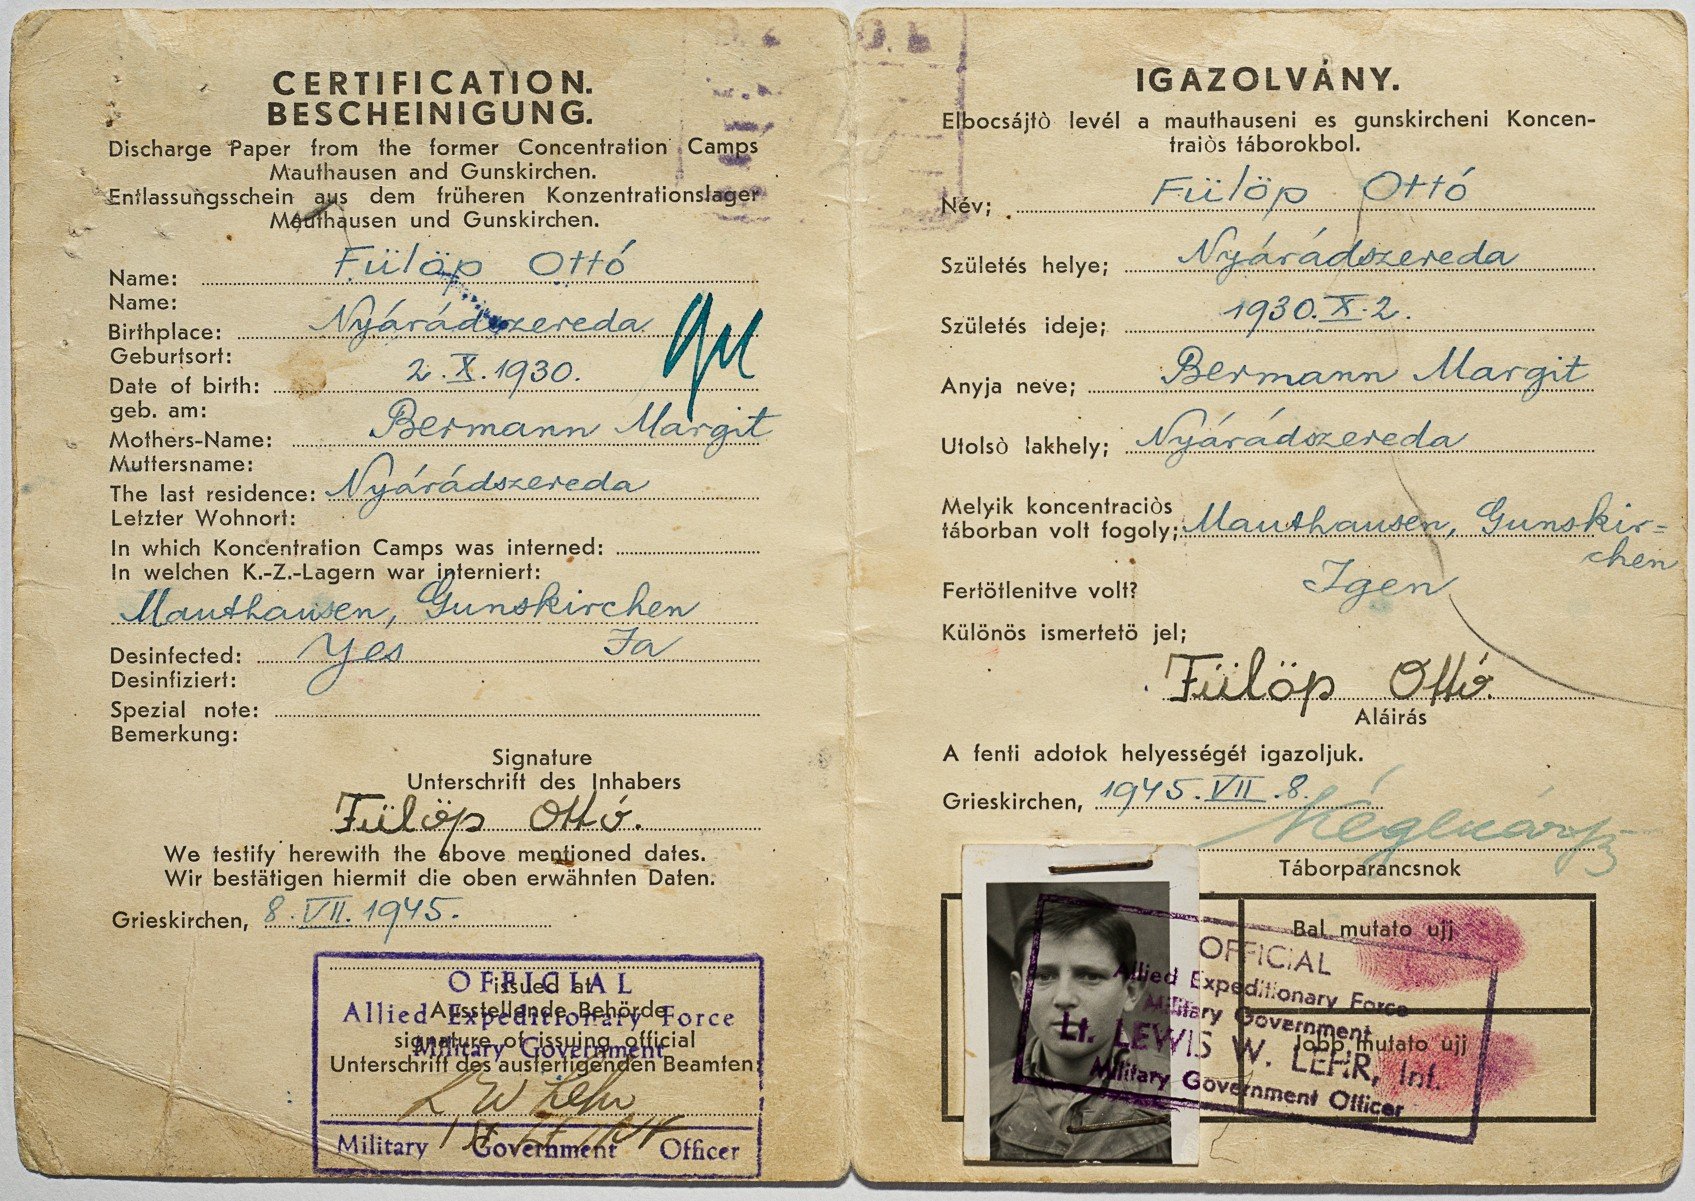 CERTIFICATION.
BESCHEINIGUNG.
Discharge Paper from the former Concentration Camps
Mauthausen and Gunskirchen.
Entlassungsschein aus dem früheren Konzentrationslager
Mauthausen und Gunskirchen.
Name: Fülöp Ottó
Name:
Birthplace: Nyárádszereda
Geburtsort:
Date of birth: 2. X. 1930.
geb. am:
Mothers-Name: Bermann Margit
Muttersname:
The last residence: Nyárádszereda
Letzter Wohnort:
In which Koncentration Camps was interned:
In welchen K.-Z.-Lagern war interniert:
Mauthausen, Gunskirchen
Desinfected: Yes Ja
Desinfiziert:
Spezial note:
Bemerkung:
Signature
Unterschrift des Inhabers
Fülöp Ottó.
We testify herewith the above mentioned dates.
Wir bestätigen hiermit die oben erwähnten Daten.
Grieskirchen, 8. VII. 1945.
issued at
Ausstellende Behörde
signature of issuing official
Unterschrift des ausfertigenden Beamten:
OFFICIAL
Allied Expeditionary Force
Military Government
L W Lehr
Military Government Officer
IGAZOLVÁNY.
Elbocsájtò levél a mauthauseni es gunskircheni Koncen-
traiòs táborokbol.
Név; Fülöp Ottó
Születés helye; Nyárádszereda
Születés ideje; 1930. X. 2.
Anyja neve; Bermann Margit
Utolsò lakhely; Nyárádszereda
Melyik koncentraciòs
táborban volt fogoly; Mauthausen, Gunskir=
chen
Fertötlenitve volt? Igen
Különös ismertetö jel;
Fülöp Ottó.
Aláirás
A fenti adotok helyességét igazoljuk.
Grieskirchen, 1945. VII. 8.
Táborparancsnok
Bal mutato ujj
Jobb mutato ujj
OFFICIAL
Allied Expeditionary Force
Military Government
Lt. LEWIS W. LEHR, Inf.
Military Government Officer